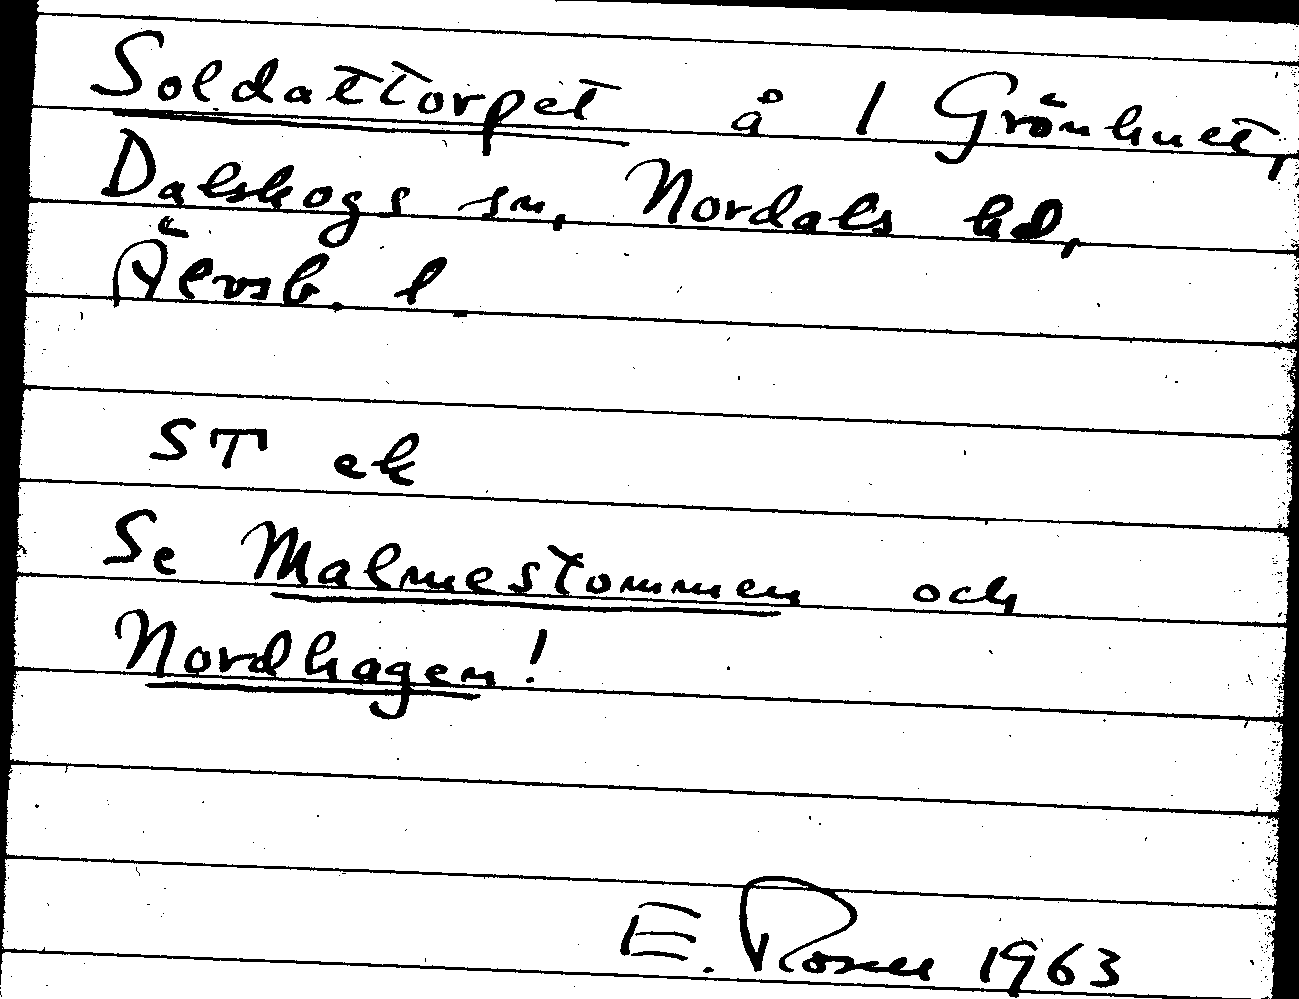 Soldattorpet å 1 Grönhult,
Dalskogs sn, Nordals hd,
Älvsb. l.
ST ek
Se Malmestommen och
Nordhagen!
E. Rosell 1963